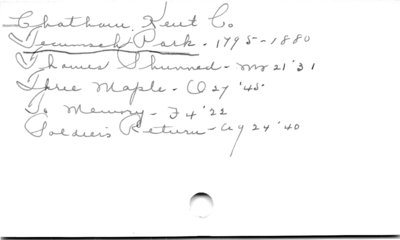 Chatham, Kent Co
Tecumseh Park - 1795-1880
Thames Shunned - Mr 21 '31
Three Maple - O 27 '45
To Memory - F 4 '22
Soldiers Return - Ag 24 '40